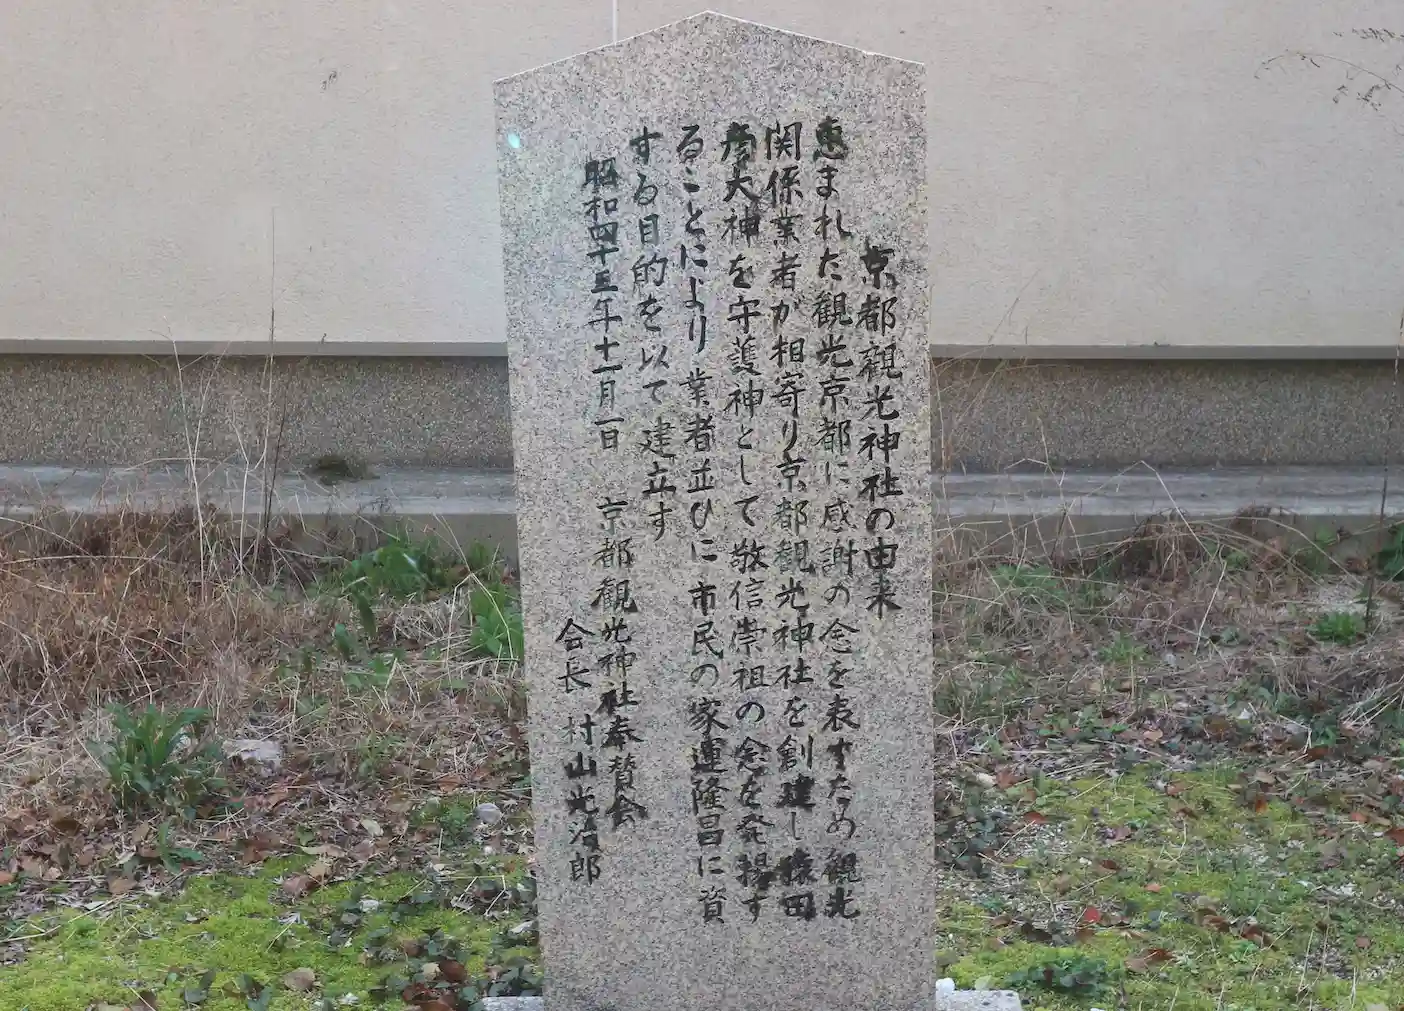 京都觀光神社の由来
恵まれた観光京都に感謝の念を表すため観光
関係業者が相寄り京都観光神社を創建し猿田
彦大神を守護神として敬信崇祖の念を発揚す
ることにより業者並びに市民の家運隆昌に資
する目的を以て建立す
昭和四十三年十一月一日 京都観光神社奉賛会
会長 村山光治郎